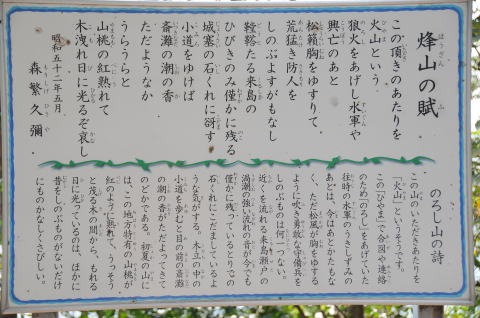 烽山の賦
ほうざん ふ
この頂きのあたりを
火山という
狼火をあげし水軍や
興亡のあと
松籟胸をゆすりて、
荒猛き防人を
しのぶよすがもなし
鞺鞳たる来島の
ひびきのみ僅かに残る
城塞の石くれに谺す
小道をゆけば
斎灘の潮の香
ただようなか
うらうらと
山桃の紅熟れて
木洩れ日に光るぞ哀し
昭和五十二年五月
森繁久彌
のろし山の詩
この山のいただきあたりを
「火山」というそうです。
この「ひやま」で合図や連絡
のため「のろし」をあげていた
往時の水軍のうきしずみの
あとは、今はあとかたもな
く、ただ松風が胸をゆする
ように吹き勇敢な守備兵を
しのぶものは何一つない。
近くを流れる来島瀬戸の
渦潮の強い流れの音が今でも
僅かに残っているとりでの
石くれにこだましているよ
うな気がする。木立の中の
小道を歩むと目の前の斎灘
の潮の香がただよってきて
のどかである。初夏の山に
は、この地方特有の山桃が
紅のように熟れて、うっそう
と茂る木の間から、もれる
日に光っているのは、ほかに
昔をしのぶものがないだけ
にものかなしくさびしい。